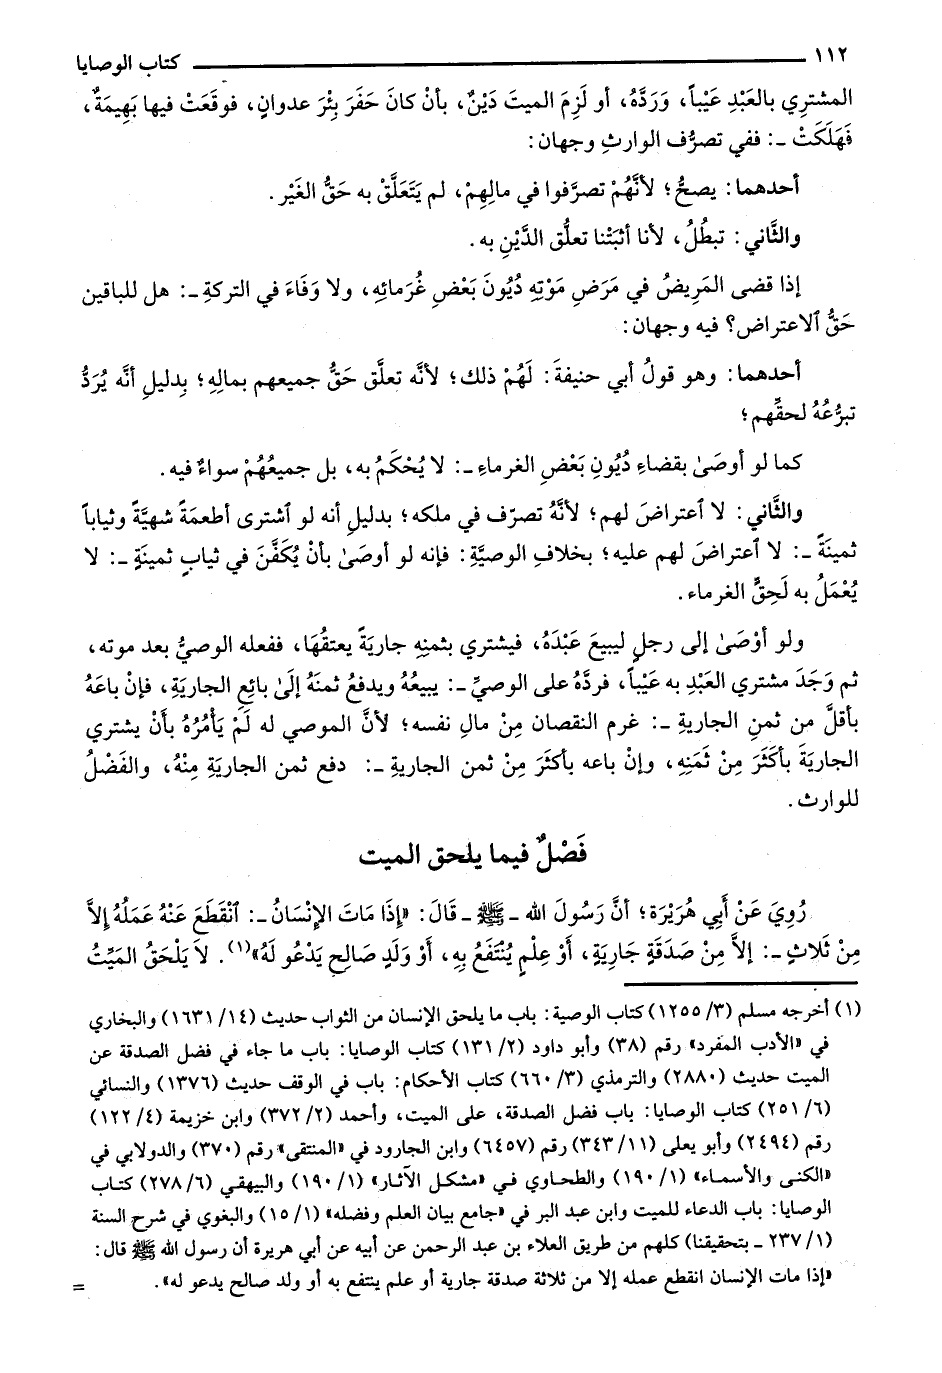 ١١٢ كتاب الوصايا
المشترِي بالعَبْدِ عَيْباً، وَرَدَّهُ، أو لَزِمَ الميتَ دَيْنٌ، بأنْ كانَ حَفَرَ بِئْرَ عدوانٍ، فوقَعَتْ فيها بَهِيمَةٌ،
فَهَلَكَتْ ـ: ففي تصرُّف الوارثِ وجهان:
أحدهما: يصحُّ؛ لأنَّهُمْ تصرَّفوا في مالِهِمْ، لم يَتَعَلَّقْ به حَقُّ الغَيْر.
والثَّاني: تبطُلُ، لأنا أثبَتْنا تعلُّق الدَّيْنِ به.
إذا قضى المَرِيضُ في مَرَضِ مَوْتِهِ دُيُونَ بَعْضِ غُرَمائِهِ، ولا وَفَاءَ في التركةِ ـ: هل للباقين
حَقُّ ٱلاعتراض؟ فيه وجهان:
أحدهما: وهو قولُ أبي حنيفةَ: لَهُمْ ذلك؛ لأنَّه تعلَّق حَقُّ جميعهم بمالِهِ؛ بِدليلِ أنَّه يُرَدُّ
تبرُّعُهُ لحقِّهم؛
كما لو أوصَىٰ بقضاءِ دُيُونِ بَعْضِ الغرماءِ ـ: لا يُحْكَمُ به، بل جميعُهُمْ سواءٌ فيه.
والثَّاني: لا ٱعتراضَ لهم؛ لأنَّهُ تصرّف في ملكه؛ بدليلِ أنه لو ٱشترى أطعمَةً شهيَّةً وثياباً
ثمينَةً ـ: لا ٱعتراضَ لهم عليه؛ بخلافِ الوصيَّةِ: فإنه لو أوصَىٰ بأنْ يُكَفَّنَ في ثيابٍ ثمينَةٍ ـ: لا
يُعْمَلُ به لَحِقِّ الغرماء.
ولو أوْصَىٰ إلى رجلٍ ليبيعَ عَبْدَهُ، فيشتري بثمنِهِ جاريَةً يعتقُهَا، ففعله الوصيُّ بعد موته،
ثم وَجَدَ مشتري العَبْدِ به عَيْباً، فردَّهُ على الوصيِّ ـ: يبيعُهُ ويدفعُ ثمنَهُ إلَىٰ بائِعِ الجاريَةِ، فإنْ باعَهُ
بأقلَّ من ثمنِ الجاريةِ ـ: غرم النقصان مِنْ مالِ نفسه؛ لأنَّ الموصي له لَمْ يَأْمُرْهُ بأَنْ يشتري
الجاريَةَ بأكَثَرَ مِنْ ثَمَنِهِ، وإنْ باعه بأكثَرَ مِنْ ثمن الجاريةِ ـ: دفع ثمن الجاريَةِ مِنْهُ، والفَضْلُ
للوارث.
فَصْلٌ فيما يلحق الميت
رُوِيَ عَنْ أَبِي هُرَيْرَة؛ أنَّ رَسُولَ الله ـ ﷺ ـ قَالَ: «إِذَا مَاتَ الإِنْسَانُ ـ: ٱنْقَطَعَ عَنْهُ عَمَلُهُ إلاَّ
مِنْ ثَلاثٍ ـ: إلاَّ مِنْ صَدَقَةٍ جَارِيَةٍ، أَوْ عِلْمٍ يُنْتَفَعُ بِهِ، أَوْ وَلَدٍ صَالِحٍ يَدْعُو لَهُ»(١). لاَ يَلْحَقُ المَيِّتُ
(١) أخرجه مسلم (٣/ ١٢٥٥) كتاب الوصية: باب ما يلحق الإنسان من الثواب حديث (١٤/ ١٦٣١) والبخاري
في «الأدب المفرد» رقم (٣٨) وأبو داود (٢/ ١٣١) كتاب الوصايا: باب ما جاء في فضل الصدقة عن
الميت حديث (٢٨٨٠) والترمذي (٣/ ٦٦٠) كتاب الأحكام: باب في الوقف حديث (١٣٧٦) والنسائي
(٦/ ٢٥١) كتاب الوصايا: باب فضل الصدقة، على الميت، وأحمد (٢/ ٣٧٢) وابن خزيمة (٤/ ١٢٢)
رقم (٢٤٩٤) وأبو يعلى (١١/ ٣٤٣) رقم (٦٤٥٧) وابن الجارود في «المنتقى» رقم (٣٧٠) والدولابي في
«الكنى والأسماء» (١/ ١٩٠) والطحاوي في «مشكل الآثار» (١/ ١٩٠) والبيهقي (٦/ ٢٧٨) كتاب
الوصايا: باب الدعاء للميت وابن عبد البر في «جامع بيان العلم وفضله» (١/ ١٥) والبغوي في شرح السنة
(١/ ٢٣٧ ـ بتحقيقنا) كلهم من طريق العلاء بن عبد الرحمن عن أبيه عن أبي هريرة أن رسول الله ﷺ قال:
«إذا مات الإنسان انقطع عمله إلا من ثلاثة صدقة جارية أو علم ينتفع به أو ولد صالح يدعو له». =